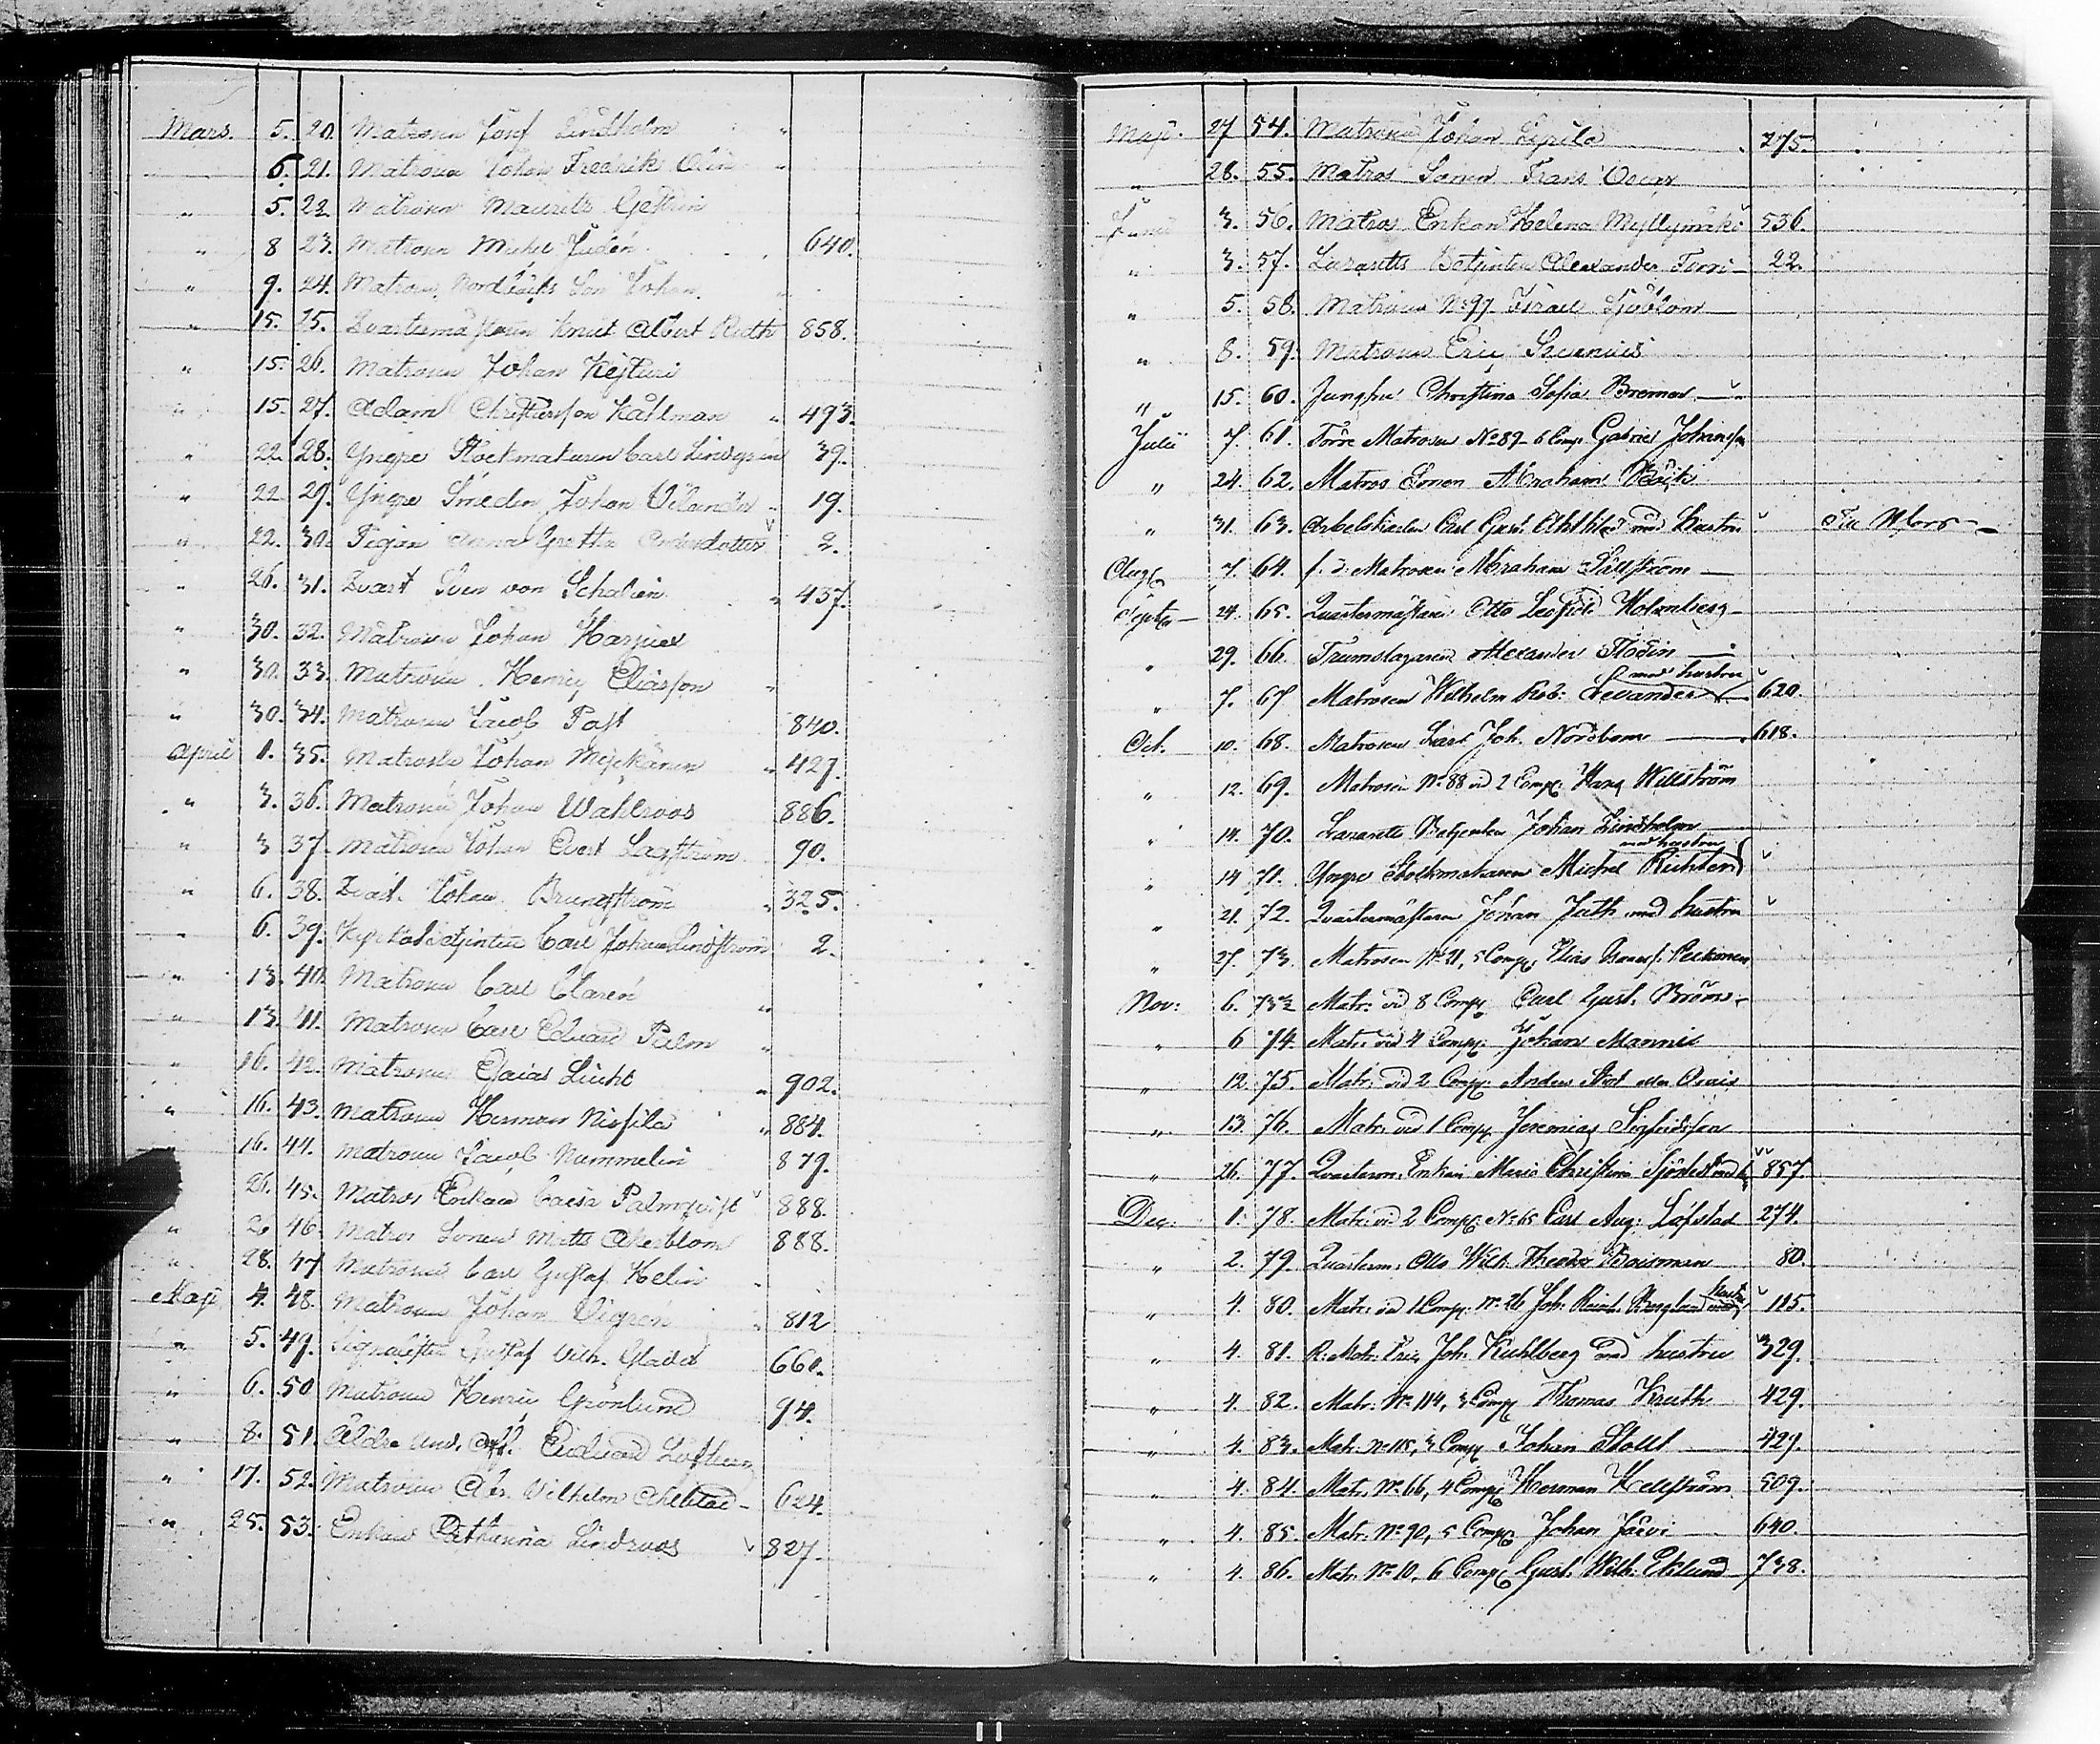 Mars. 5. 20. Matrosen Josef Lindholm "
6. 21. Matrosen Johan Fredrik Olin "
" 5. 22. Matrosen Maurits Gestrin
" 8 23. Matrosen Michel Juden 640.
" 9. 24. Matrosen Son Johan
" 15. 25. Knut Albert Ruth 858.
" 15. 26. Matrosen Johan Kejturi
" 15. 27. Adam Christersson Kållman " 493.
" 22. 28. Yngre Stockmakaren Carl Lindgren 39.
" 22 29. Yngre Smeden Johan Vilander 19.
" 22. 30. Pigan Anna Gretha Andersdotter 2.
" 26. 31. Qvart Sven von Schalien " 437.
" 30. 32. Matrosen Johan Harpick
" 30. 33. Matrosen Henric Eliasson "
" 30. 34. Matrosen Jacob Past 840.
April 1. 35. Matrosen Johan " 427.
" 3. 36. Matrosen Johan Wahlroos 886.
" 3 37. Matrosen Johan Evert Lagström 90.
" 6. 38. Qvart. Johan Brungström " 325.
" 6. 39. Carl Johan Lindström 2.
" 13. 40. Matrosen Carl Claren "
" 13 41. Matrosen Carl Eduard Palm "
" 16. 42. Matrosen Esaias Lucht " 902.
" 16. 43. Matrosen Herman Nissilä " 884.
16. 44. Matrosen Jacob Nummelin 879.
26. 45. Matros Enkan Caisa Palmqvist 888.
" 26 46. Matros Sonen Matts Åkerblom 888.
" 28. 47 Matrosen Carl Gustaf Helin "
Maji 4. 48. Matrosen Johan Vigren " 812
" 5. 49. Signalisten Gustaf Vilh. Glader 661.
" 6. 50 Matrosen Henric Grönlund 94.
" 8. 51. Äldre Und. Off. Eduard Löfberg
" 17. 52. Matrosen Abr. Vilhelm Ahlblad 624.
" 25. 53. Enkan Catharina Lindroos 827.
Maji. 27 54. Matrosen Johan 275.
" 28. 55. Matros Sonen Frans Oscar
Junii 3. 56. Matros Enkan Helena Myllymäki 536.
" 3. 57. Lazaretts Betjenten Alexander Torri 22.
" 5. 58. Matrosen No 97. Israel Sjöblom
" 8. 59. Matrosen Eric
" 15. 60. Jungfru Christina Sofia Bremer
Julii 7. 61. Förre Matrosen No 89 6 Comp. Gabriel Johansson
" 24. 62. Matros Sonen Abraham Bäck
" 31. 63. Arbetskarlen Carl Gust. Ahlblad med hustru Till
Aug. 7. 64. f. d. Matrosen Abraham Sällström
Sept. 24. 65. Quartermästaren Otto Leopold Holmberg
" 29. 66. Trumslagaren Alexander Flodin
med hustru
" 7. 67 Matrosen Wilhelm Rob. Levander 620.
Oct. 10. 68. Matrosen Carl Joh. Nordbom 618.
" 12. 69. Matrosen No 88 vid 2 Comp. Hans Willström
" 14. 70. Lazaretts Betjenten Johan Lindholm
med hustru
" 14 71. Yngre Stockmakaren Michel Richter
" 21. 72. Quartermästaren Johan Juth med hustru
" 27. 73. Matrosen No 21, 5 Comp. Elias
Nov: 6. 73½ Matr. vid 8 Comp. Carl Gust. Bröms
" 6 74. Matr. vid 4 Comp. Johan Mannis
" 12. 75. Matr. vid 2 Comp. Anders
" 13. 76. Matr. vid 1 Comp. Jeremias Sigfridsson
" 26. 77. Quarterm. Enkan Maria Christina 857.
Dec. 1. 78. Matr. vid 2 Comp. No 65 Carl Aug. Löfstad 274.
" 2. 79. Quarterm. Otto Wilh. Theodor Boisman 80.
" 4. 80. Matr. vid 1 Comp. No 26 Joh. Reinh. Berglund med hustru 115.
" 4. 81. R. Matr. Eric Joh. Kuhlberg med hustru 329.
" 4. 82. Matr. No 114, 3 Comp. Thomas Kruth 429.
" 4. 83. Matr. No 115, 3 Comp. Johan Stollt 429.
" 4. 84. Matr. No 66, 4 Comp. Herman Hellström 509.
" 4. 85. Matr. No 90, 5 Comp. Johan Järvi 640.
" 4. 86. Matr. No 10, 6 Comp. Gust. Wilh. Eklund 738.